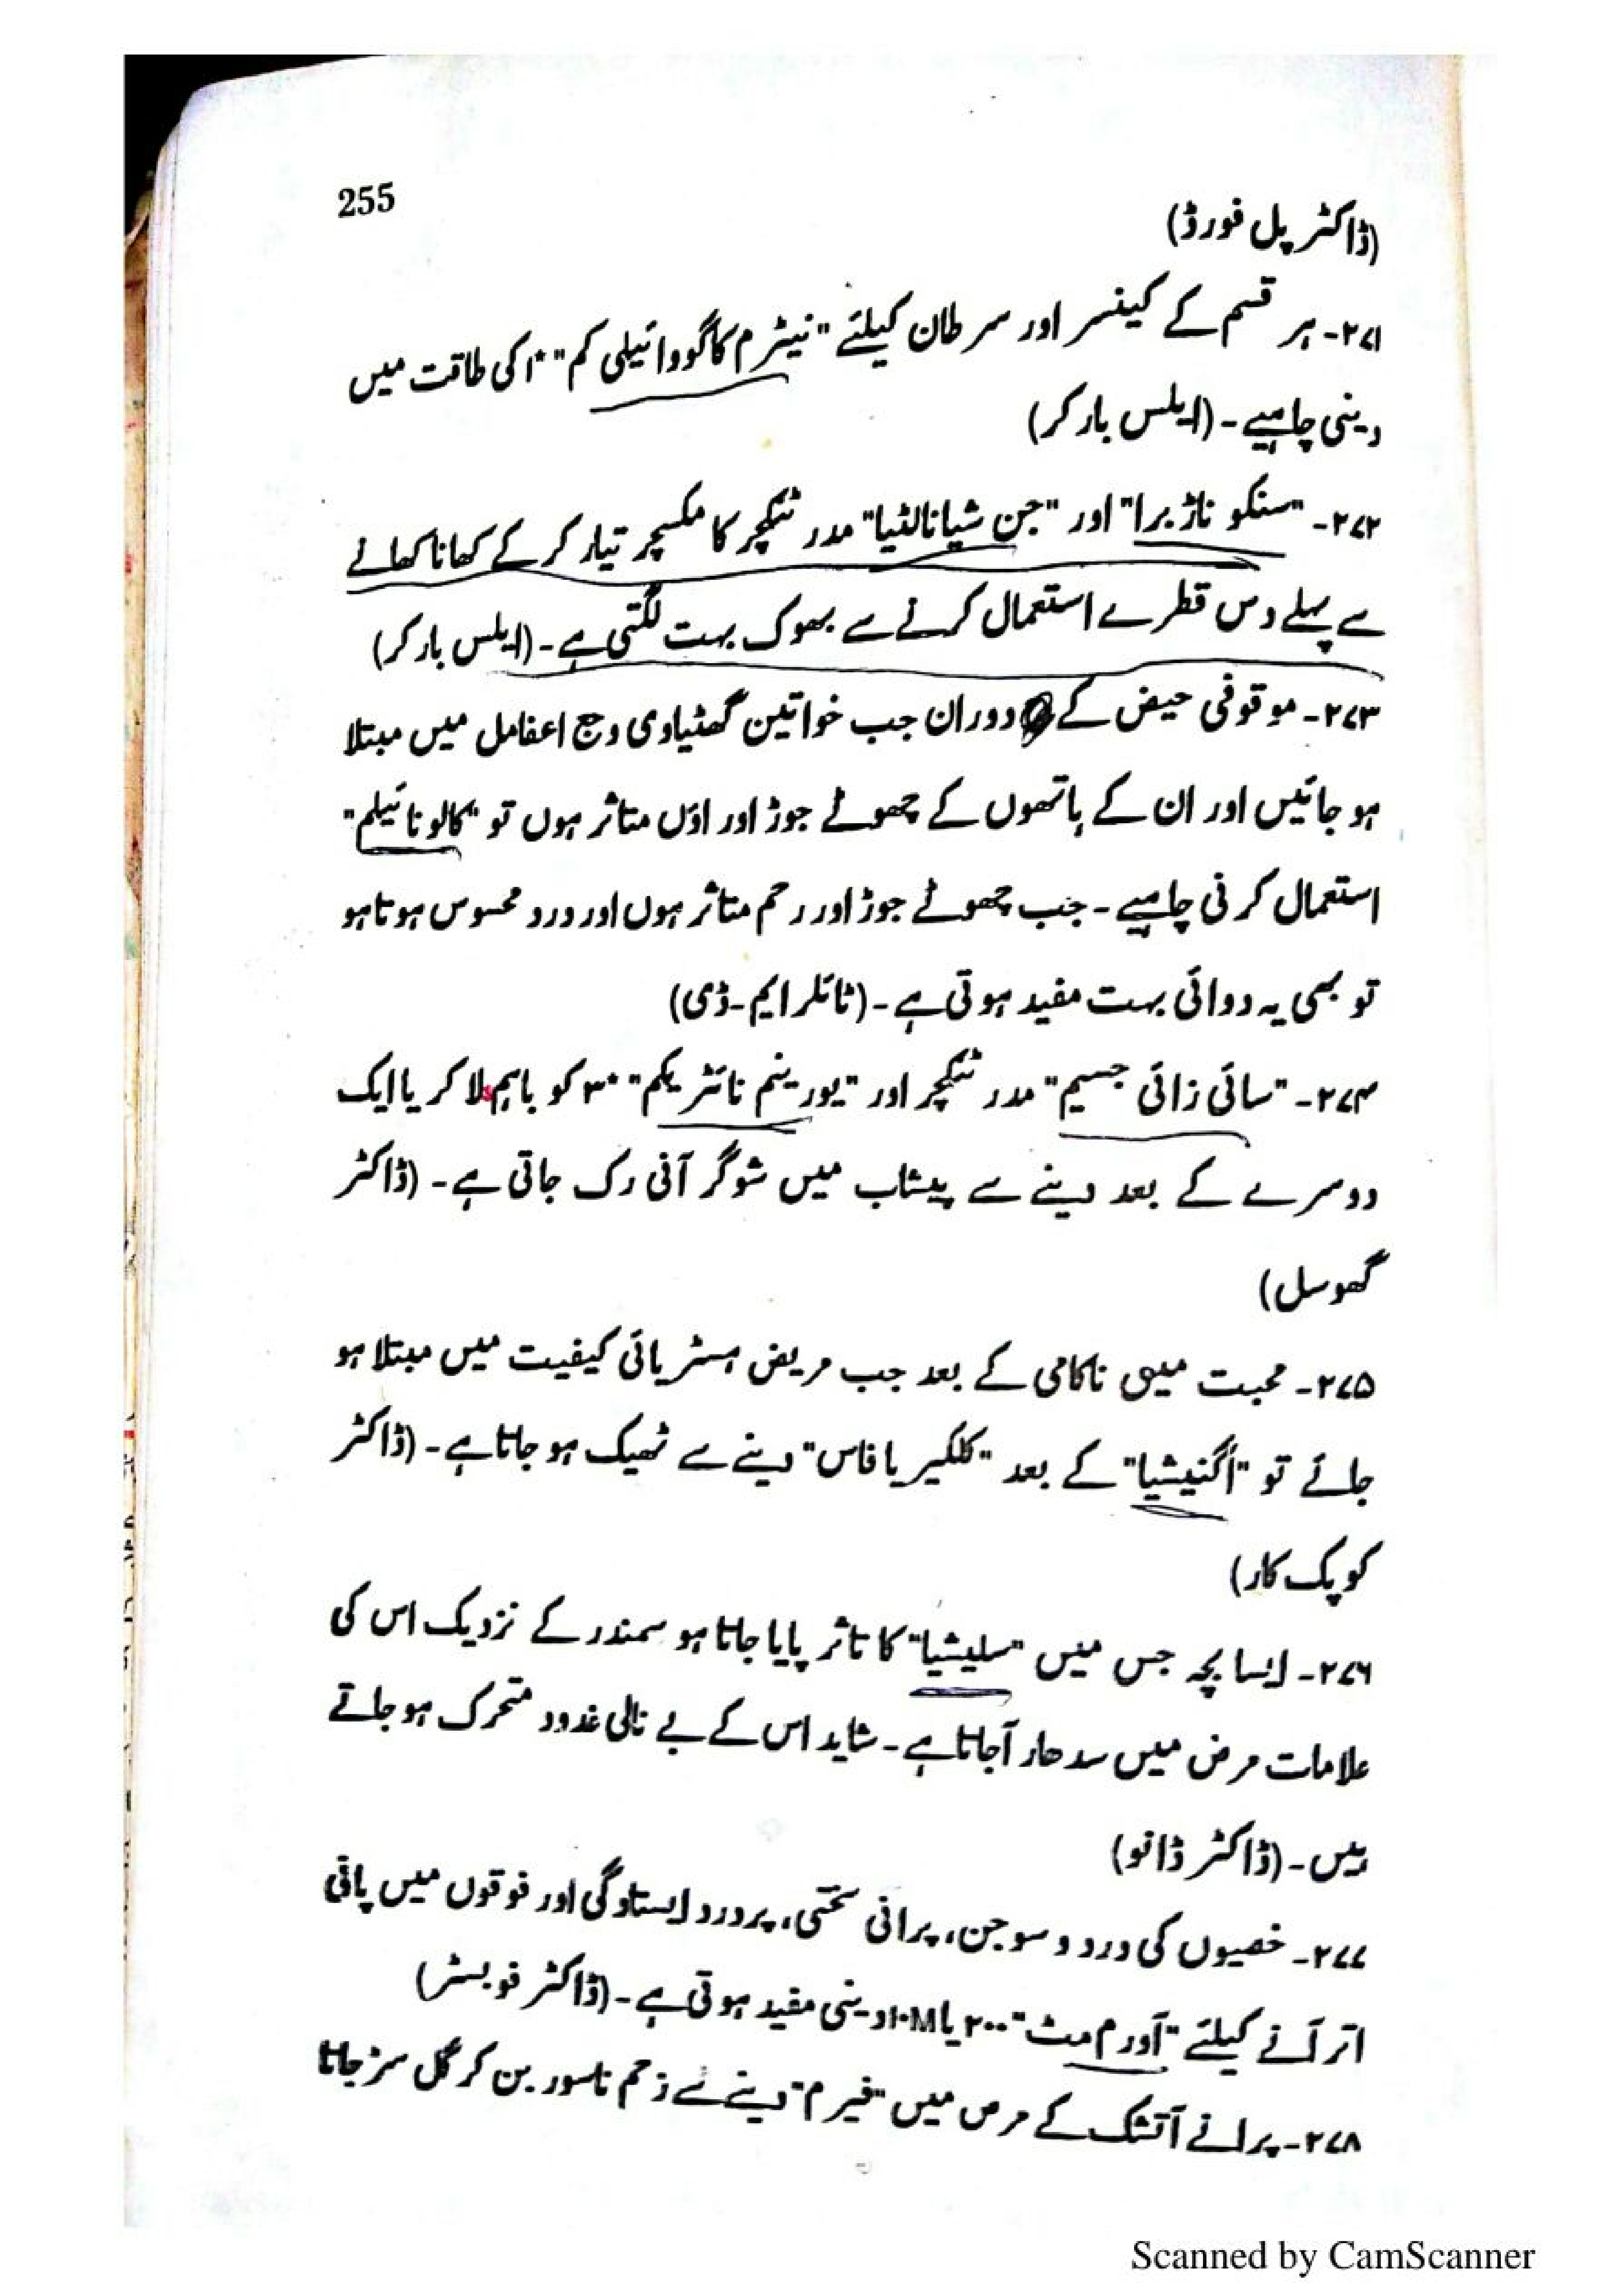 255
(ڈاکٹر پل فورڈ)
۲۷۱- ہر قسم کے کینسر اور سرطان کیلئے "نیٹرم کاگووائیلی کم" *۱ کی طاقت میں
دینی چاہیے۔ (ایلس بارکر)
۲۷۲- "سنکو ناڑبرا" اور "جن شیانالٹیا" مدر ٹنکچر کا مکسچر تیار کر کے کھانا کھانے
سے پہلے دس قطرے استعمال کرنے سے بھوک بہت لگتی ہے۔ (ایلس بارکر)
۲۷۳- موقوفی حیض کے دوران جب خواتین گھٹیاوی وجع اعفامل میں مبتلا
ہو جائیں اور ان کے ہاتھوں کے چھوٹے جوڑ اور اوں متاثر ہوں تو "کالو نائیلم"
استعمال کرنی چاہیے۔ جب چھوٹے جوڑ اور رحم متاثر ہوں اور درد محسوس ہوتا ہو
تو بھی یہ دوائی بہت مفید ہوتی ہے۔ (ٹائلر ایم۔ڈی)
۲۷۴- "سائی زائی جسیم" مدر ٹنکچر اور "یورینم نائٹریکم" *۳ کو باہم ملا کر یا ایک
دوسرے کے بعد دینے سے پیشاب میں شوگر آنی رک جاتی ہے۔ (ڈاکٹر
گھوسل)
۲۷۵- محبت میں ناکامی کے بعد جب مریض ہسٹریائی کیفیت میں مبتلا ہو
جائے تو "اگنیشیا" کے بعد "کلکیریا فاس" دینے سے ٹھیک ہو جاتا ہے۔ (ڈاکٹر
کوپک کار)
۲۷۶- ایسا بچہ جس میں "سلیشیا" کا تاثر پایا جاتا ہو سمندر کے نزدیک اس کی
علامات مرض میں سدھار آجاتا ہے۔ شاید اس کے بے نالی غدود متحرک ہو جاتے
ہیں۔ (ڈاکٹر ڈانو)
۲۷۷- خصیوں کی درد و سوجن، پرانی سختی، پردرد ایستادگی اور فوقوں میں پانی
اتر آنے کیلئے "آورم مٹ" ۲۰۰ یا ۱۰M دینی مفید ہوتی ہے۔ (ڈاکٹر فوبسٹر)
۲۷۸- پرانے آتشک کے مرض میں "فیرم" دینے سے زخم ناسور بن کر گل سڑ جاتا
Scanned by CamScanner